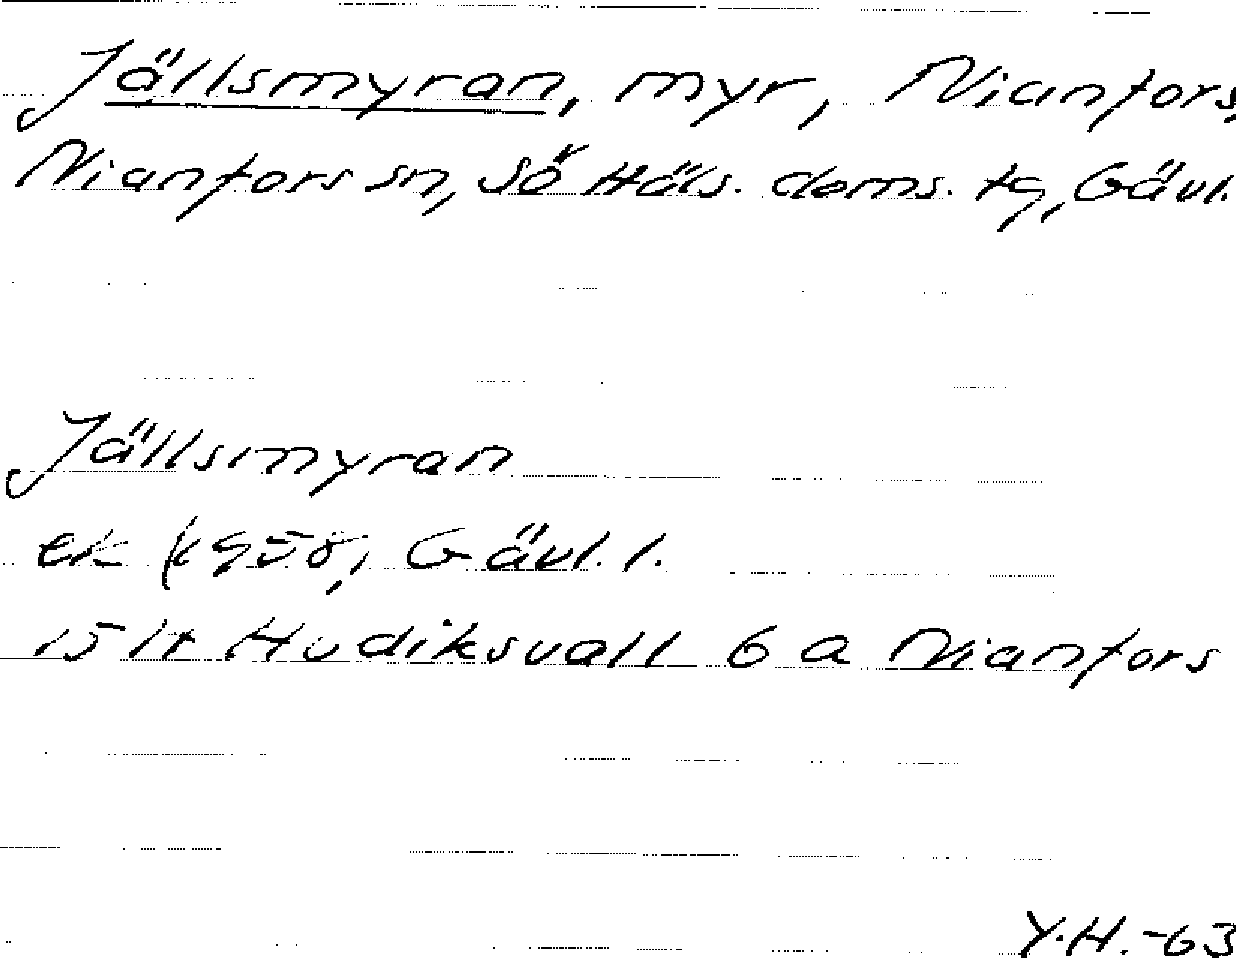 Jällsmyran, myr, Nianfors,
Nianfors sn, Sö Häls. doms. tg, Gävl.
Jällsmyran
ek (1958, Gävl. l.
15 Hudiksvall 6 a Nianfors
Y.H.-63